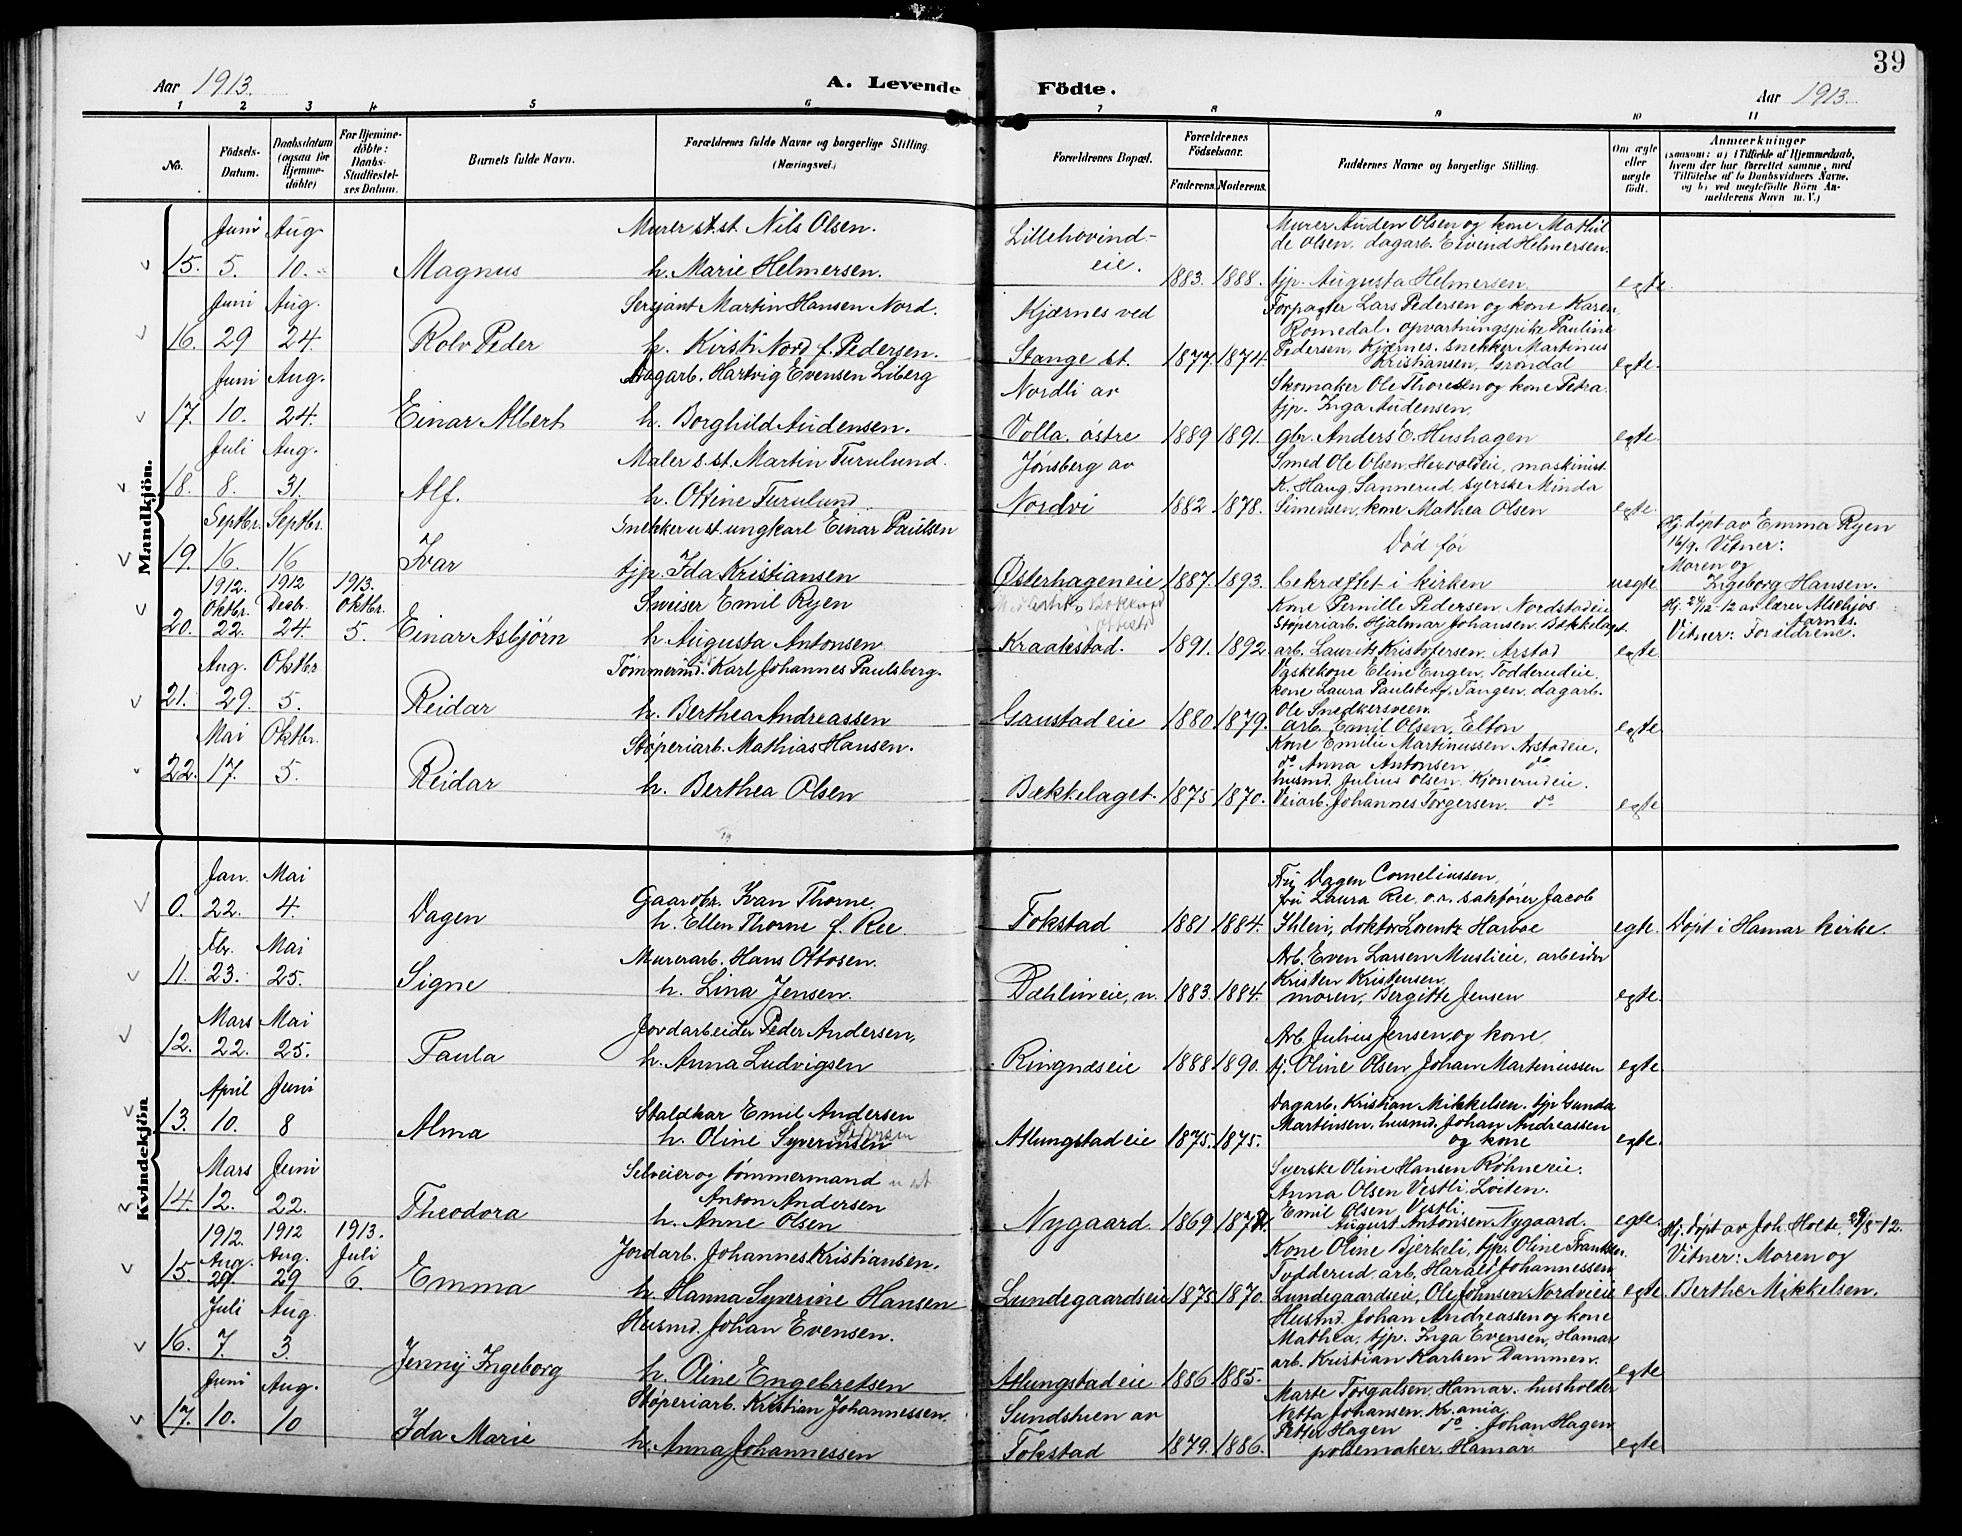 39
Aar 1913.
A. Levende Födte.
Aar 1913.
1 2 3 4 5 6 7 8 9 10 11
No.
Födsels-Datum.
Daabsdatum (ogsaa for Hjemme-döbte)
For Hjemme-döbte: Daabs-Stadfæstel-ses Datum.
Barnets fulde Navn.
Forældrenes fulde Navne og borgerlige Stilling. (Næringsvei.)
Forældrenes Bopæl.
Forældrenes Födselsaar.
Faderens. Moderens.
Faddernes Navne og borgerlige Stilling.
Om ægte eller uægte født.
Anmærkninger
(saasom: a) i Tilfælde af Hjemmedaab, hvem der har forrettet samme, med Tilføielse af to Daabsvidners Navne, og b) ved uægtefödte Börn An-melderens Navn m. V.)
Mandkjön.
Juni Aug.
15. 5. 10.
Magnus
Murer s.st. Nils Olsen.
h. Marie Helmersen.
Lillehovind-
eie.
1883. 1888.
Murer Auden Olsen og kone Mathil
de Olsen, dagarb. Eivend Helmersen.
tjp. Augusta Helmersen.
egte.
Juni Aug.
16. 29 24.
Rolv Peder
Serjant Martin Hansen Nord.
h. Kirsti Nord f. Pedersen.
Kjærnes ved
Stange st.
1877. 1874.
Forpagter Lars Pedersen og kone Karen,
Romedal. opvartningspike Pauline
Pedersen, Kjærnes. snekker Martinus
Kristiansen, Grøndal
egte.
Juni Aug.
17. 10. 24.
Einar Albert
Dagarb. Hartvig Evensen Liberg
h. Borghild Audensen.
Nordli av
Volla. østre
1889 1891.
Skomaker Ole Thoresen og kone Petra.
tjp. Inga Audensen.
gbr. Anders O. Hushagen
egte.
Juli Aug.
18. 8. 31.
Alf.
Maler s.st. Martin Furulund.
h. Otine Furulund
Jønsberg av
Nordvi
1882 1878.
Smed Ole Olsen, Hexvoldeie, maskinist
K. Haug, Sannerud, syerske Minda
Simensen, kone Mathea Olsen
egte.
Septbr. Septbr.
19. 16. 16
Ivar
Snekker u st. ungkarl Einar Paulsen
tjp. Ida Kristiansen
Østerhageneie
1887. 1893.
Død før
bekræftet i kirken
uegte.
Hj. døpt av Emma Ryen
16/9. Vitner:
Moren og
Ingeborg Hansen.
1912. 1912 1913.
Oktbr. Decb. Oktbr.
20. 22. 24. 5.
Einar Asbjørn
Sveiser Emil Ryen
h. Augusta Antonsen
Kraakstad.
1891. 1892
Kone Pernille Pedersen, Nordstadeie
Støperiarb. Hjalmar Johansen. Bækkelaget.
arb. Laurits Kristofersen, Arstad
egte.
Hj. 24/12-12 av lærer
Aarnes.
Vitner: Forældrene.
Aug. Oktbr
21. 29. 5.
Reidar
Tømmermd. Karl Johannes Paulsberg.
h. Berthea Andreassen
Gaustadeie
1880 1879.
Vaskekone Eline Engen, Todderudeie,
kone Laura Paulsberg, Tangen, dagarb.
Ole Snedkersveen.
arb. Emil Olsen, Elton
egte.
Mai Oktbr.
22. 17. 5.
Reidar
Støperiarb. Mathias Hansen.
h. Berthea Olsen
Bækkelaget.
1875 1870.
Kone Emilie Martinussen Arstadeie.
do Anna Antonsen do
husmd. Julius Olsen, Kjonerudeie.
Veiarb. Johannes Torgersen. do
egte
Kvindekjön
Jan. Mai
0. 22. 4.
Dagen
Gaardbr. Ivan Thorne.
h. Ellen Thorne f. Ree
Fokstad
1881 1884.
Fru Dagen Corneliussen,
frøi Laura Ree, o.r. sakfører Jacob
Ihlen, doktor Lorentz Harboe
egte.
Døpt i Hamar kirke.
Fbr. Mai
11. 23. 25.
Signe
Murerarb. Hans Ottosen.
h. Lina Jensen.
Dæhlineie, n.
1883. 1884.
Arb. Even Larsen Muslieie, arbeider
Kristen Kristensen,
moren, Bergitte Jensen
egte.
Mars Mai
12. 22. 25.
Paula
Jordarbeider Peder Andersen,
h. Anna Ludvigsen
Ringnæseie
1888 1890.
Arb. Julius Jensen og kone,
tj. Oline Olsen, Johan Martinussen
egte
April Juni
13. 10. 8
Alma
Staldkar Emil Andersen
h. Oline Syverinsen
Atlungstadeie
1875. 1875.
Dagarb. Kristian Mikkelsen. tjp Gunda
Martinsen, husmd. Johan Andreassen
og kone
egte.
Mars Juni
14. 12. 22.
Theodora
Selveier og tømmermand u st
Anton Andersen
h. Anne Olsen
Nygaard.
1869
Syerske Oline Hansen Røhneeie.
Anna Olsen Vestli, Løiten.
Emil Olsen, Vestli.
August Antonsen, Nygaard.
egte.
1912. 1912 1913.
Aug. Aug. Juli
15 29 29 6.
Emma
Jordarb. Johannes Kristiansen.
h. Hanna Syverine Hansen
Lundegaardseie
1875. 1870.
Kone Oline Bjerkeli, tjp. Oline Frantsen,
Todderud, arb. Harald Johannessen,
Lundegaardseie, Ole Johnsen Nordvieie
egte.
Hj. døpt av Joh. Holte, 29/8-12.
Vitner: Moren og
Berthe Mikkelsen.
Juli Aug.
16. 7. 3.
Jenny Ingeborg
Husmd. Johan Evensen.
h. Oline Engebretsen
Atlungstadeie
1886 1885.
Husmd. Johan Andreassen og kone
Mathea, tjp. Inga Evensen, Hamar
arb. Kristian Karlsen Dammen.
egte
Juni Aug.
17. 10. 10
Ida Marie
Støperiarb. Kristian Johannessen.
h. Anna Johannessen
Sundstuen av
Fokstad
1879. 1886.
Marte Torgalsen, Hamar. husholder
Netta Johansen, Kr.ania.
Petter Hagen do. Johan Hagen
pølsemaker, Hamar
egte